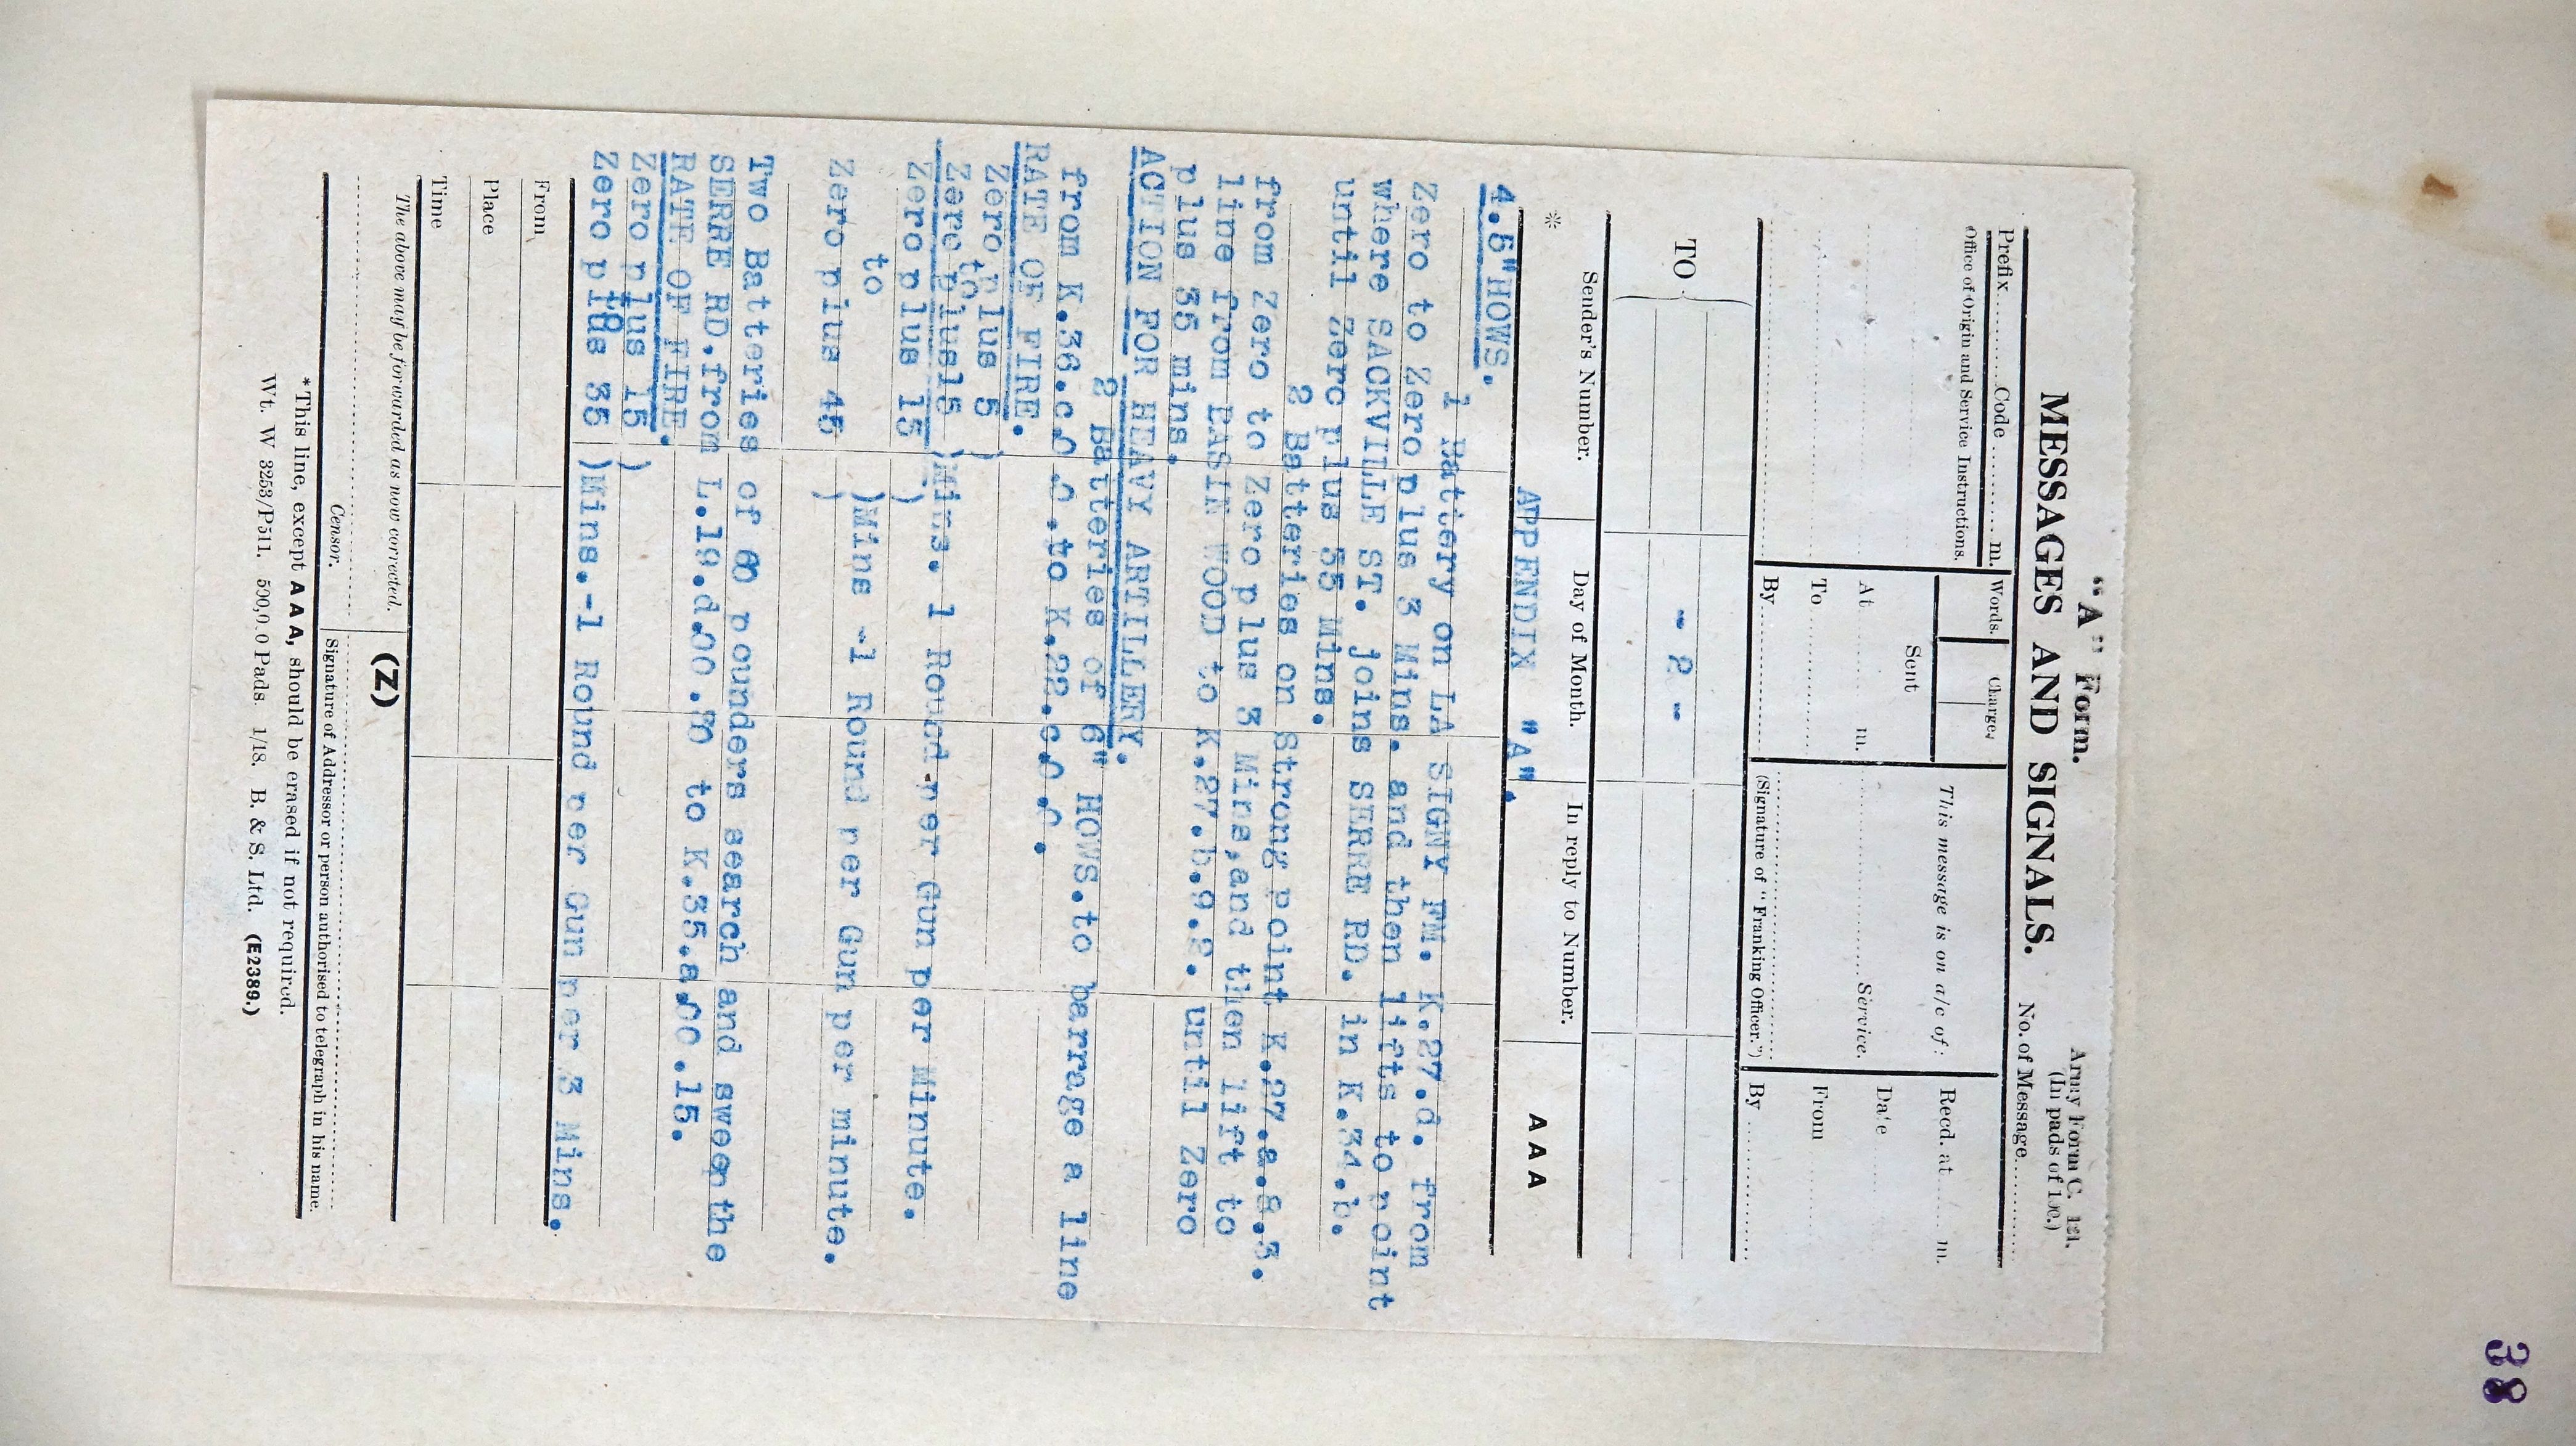 38
"A" Form.
Army Form C. 121.
(In pads of 100.)
MESSAGES AND SIGNALS.
No. of Message
Prefix Code m.
Words.
Charge.
This message is on a/c of:
Recd. at m.
Office of Origin and Service Instructions.
Sent
Date
At m.
Service.
From
To
By
(Signature of "Franking Officer.")
By
TO
- 2 -
Sender's Number.
Day of Month.
In reply to Number.
AAA
*
APPENDIX "A".
4.5"HOWS.
1 Battery on LA SIGNY FM. K.27.d. from
Zero to Zero plus 3 Mins. and then lifts to point
where SACKVILLE ST. joins SERRE RD. in K.34.b.
until Zero plus 35 Mins.
2 Batteries on Strong point K.27.a.8.3.
from Zero to Zero plus 3 Mins,and then lift to
line from BASIN WOOD to K.27.b.9.2. until Zero
plus 35 mins.
ACTION FOR HEAVY ARTILLERY.
2 Batteries of 6" HOWS.to barrage a line
from K.36.c.0.0.to K.22.c.0.0.
RATE OF FIRE.
Zero plus 5 )
to
Zero plus15 )Mins. 1 Round per Gun per Minute.
Zero plus 15 )
to )Mins -1 Round per Gun per minute.
Zero plus 45 )
Two Batteries of 60 pounders search and sweep the
SERRE RD.from L.19.d.00.30 to K.35.a.00.15.
RATE OF FIRE.
Zero plus 15 )
to
Zero plus 35 )Mins.-1 Round per Gun per 3 Mins.
From
Place
Time
The above may be forwarded as now corrected.
(Z)
Censor.
Signature of Addressor or person authorised to telegraph in his name.
*This line, except AAA, should be erased if not required.
Wt. W 3253/P511. 500,000 Pads. 1/18. B. & S. Ltd. (E2389.)